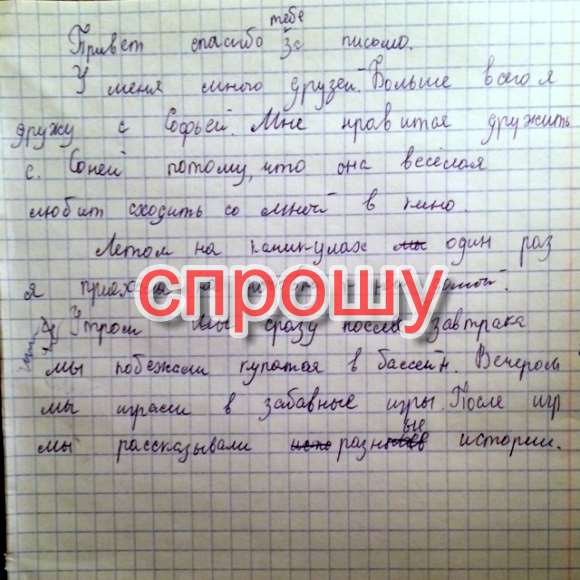 тебе
Привет спасибо за письмо.
У меня много друзей. Больше всего я
дружу с Софьей. Мне нравится дружить
с. Соней потому, что она весёлая
любит сходить со мной в кино.
Летом на каникулах мы один раз
я
спрошу
Утром мы сразу после завтрака
мы побежали купатся в бассейн. Вечером
мы играли в забавные игры. После игр
ые
мы рассказывали разн истории.